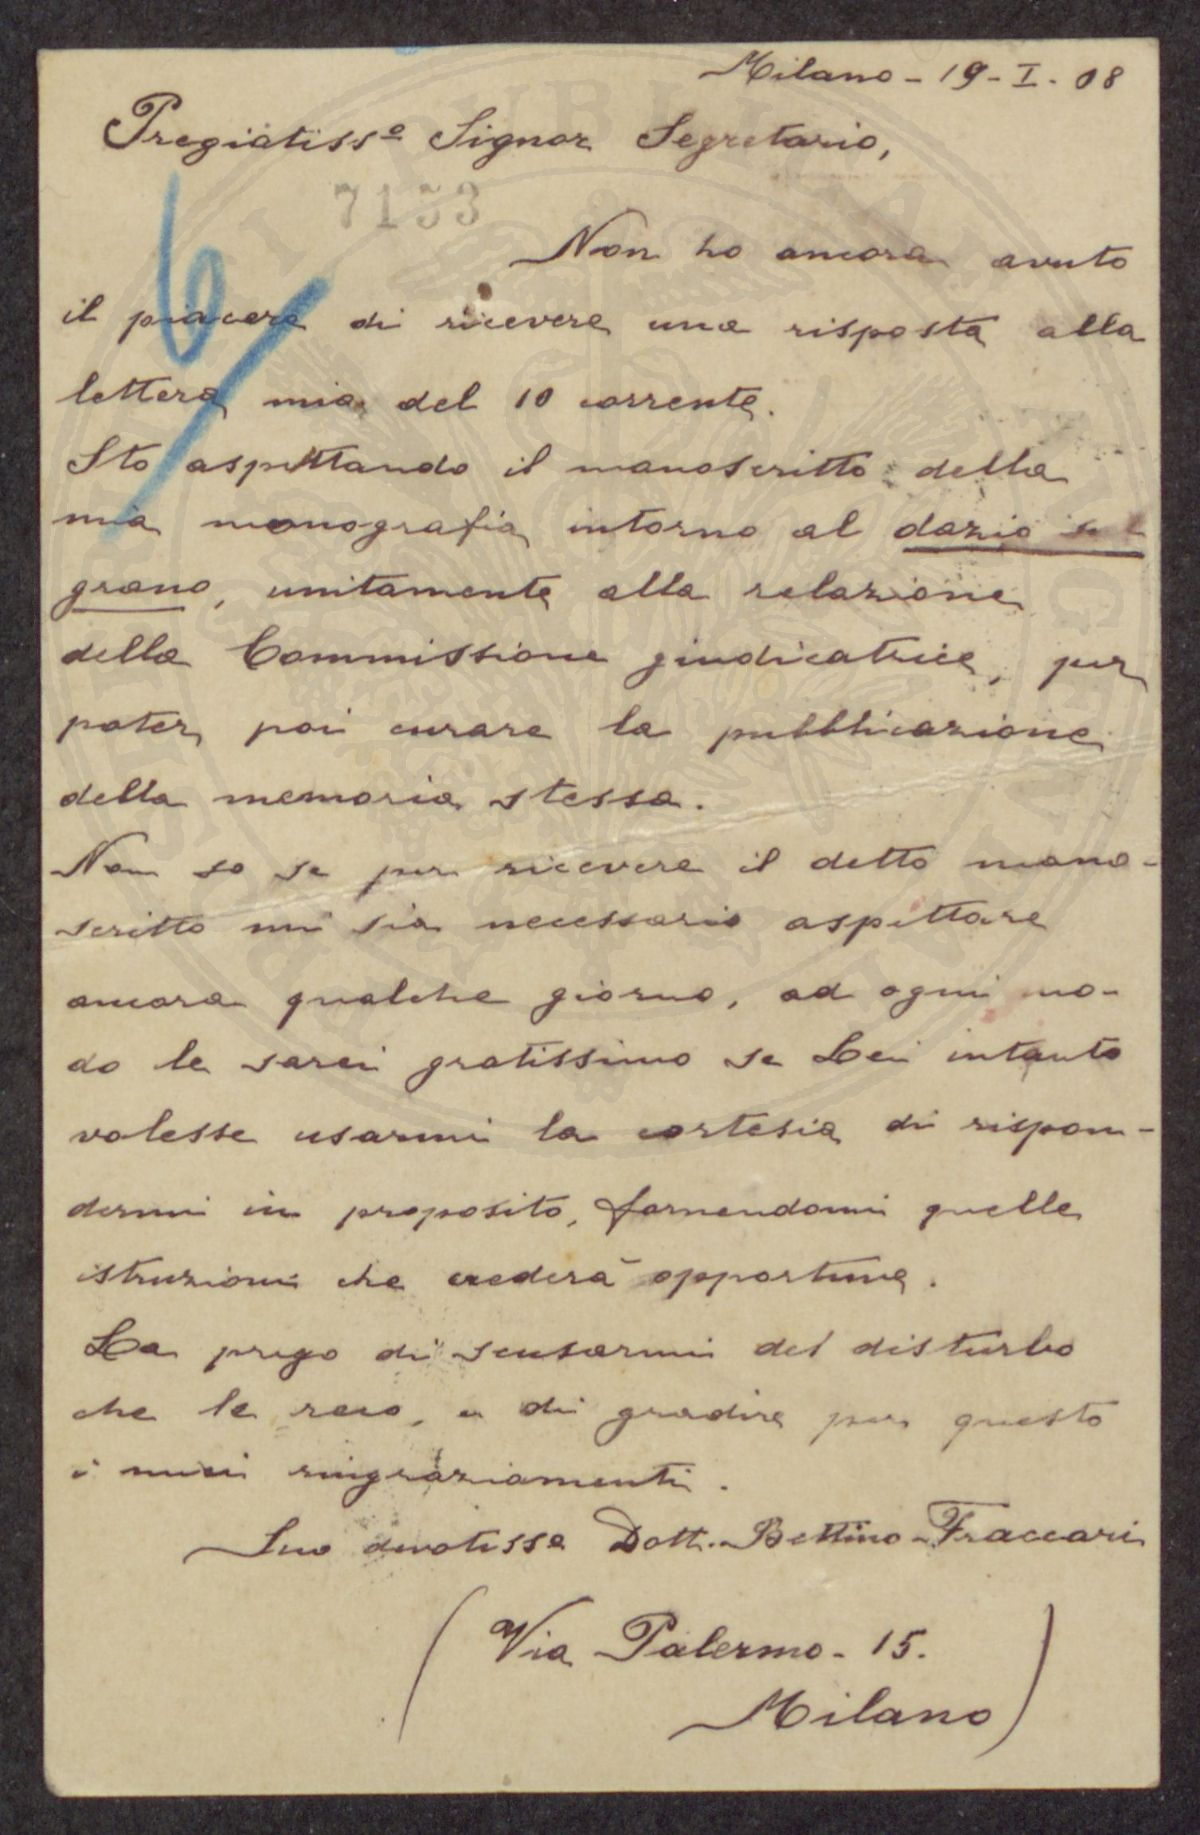 Milano - 19 - I - 08
Pregiatiss° Signor Segretario,
7153
Non ho ancora avuto
il piacere di ricevere una risposta alla
lettera mia del 10 corrente.
Sto aspettando il manoscritto della
mia monografia intorno al dazio sul
grano, unitamente alla relazione
della Commissione giudicatrice, per
poter poi curare la pubblicazione
della memoria stessa.
Non so se per ricevere il detto mano-
scritto mi sia necessario aspettare
ancora qualche giorno, ad ogni mo-
do le sarei gratissimo se Lei intanto
volesse usarmi la cortesia di rispon-
dermi in proposito, fornendomi quelle
istruzioni che crederà opportune.
La prego di scusarmi del disturbo
che le reco, e di gradire per questo
i miei ringraziamenti.
Suo devotisse Dott. Bettino Fraccari
(Via Palermo - 15.
Milano)